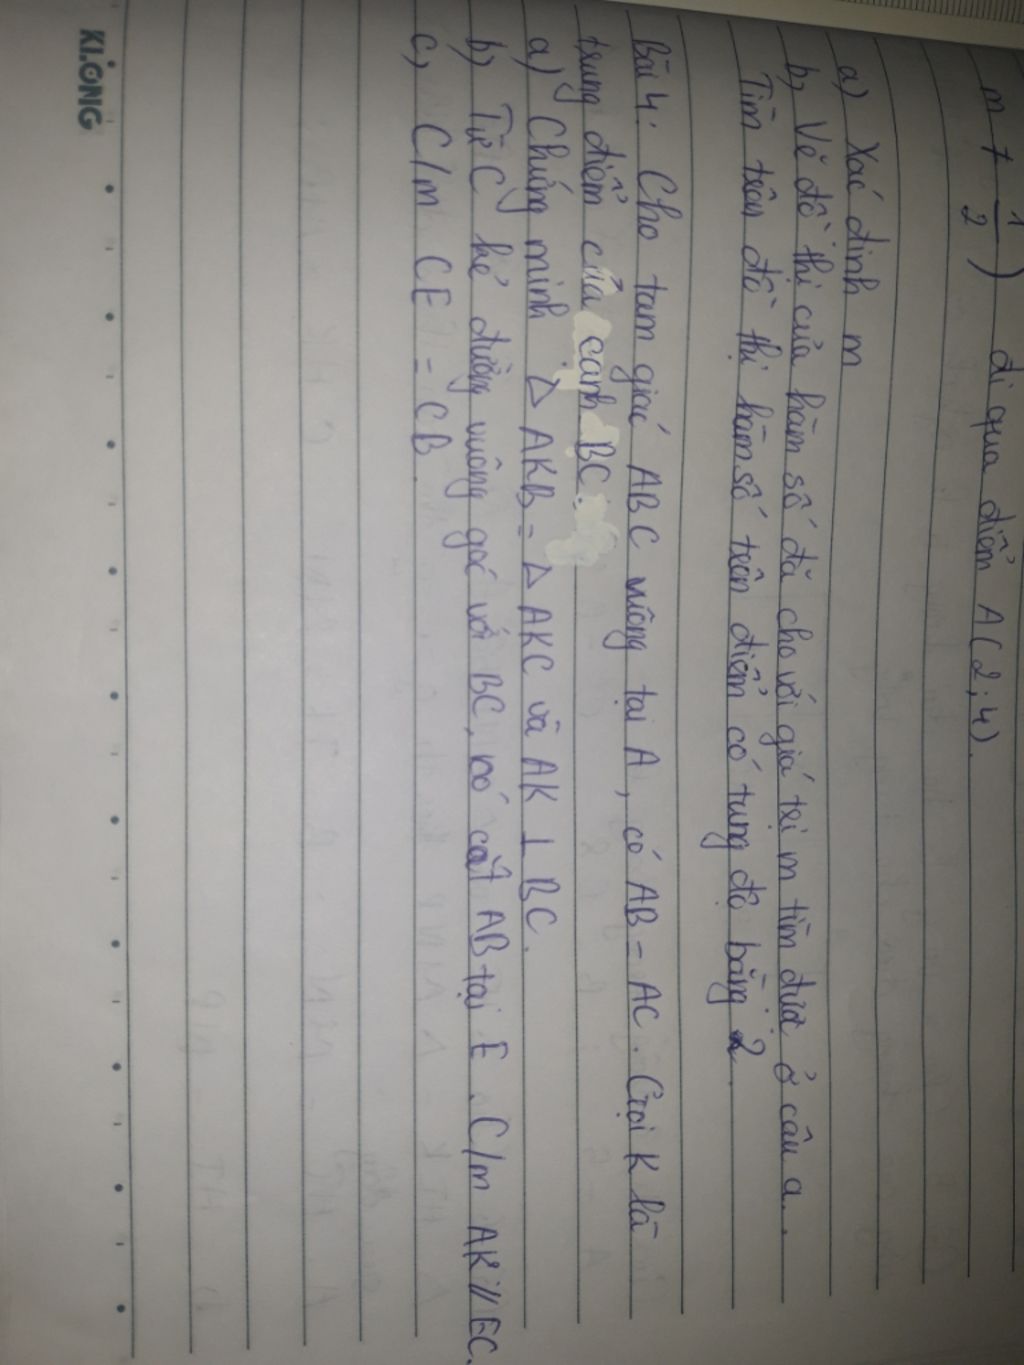 m ≠ 1/2) đi qua điểm A(2;4).
a) Xác định m
b, Vẽ đồ thị của hàm số đã cho với giá trị m tìm được ở câu a.
Tìm trên đồ thị hàm số trên điểm có tung độ bằng 2.
Bài 4: Cho tam giác ABC vuông tại A, có AB = AC. Gọi K là
trung điểm của cạnh BC.
a) Chứng minh Δ AKB = Δ AKC và AK ⊥ BC.
b) Từ C kẻ đường vuông góc với BC, nó cắt AB tại E. C/m AK // EC.
c, C/m CE = CB
KLONG